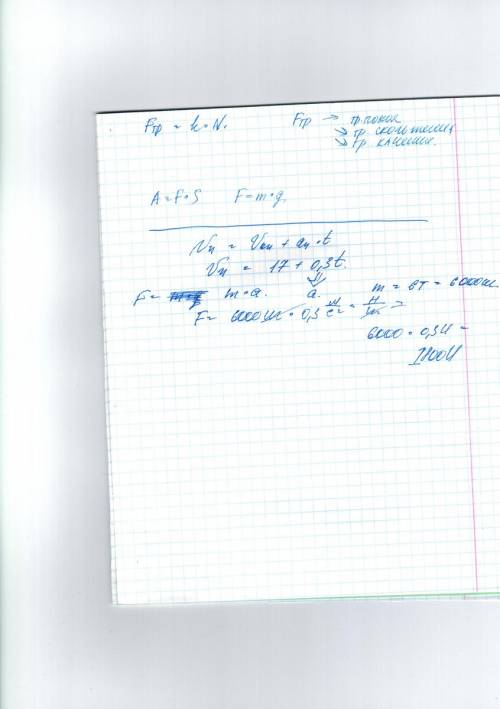 Fтр = k • N.
Fтр → тр. покоя
↘ тр. скольжения
↘ тр. качения.
A = F • S F = m • g.
Vн = Vон + aн • t
Vн = 17 + 0,3t.
F = m • a. a. m = 6т = 6000кг.
F = 6000 кг • 0,3 м/с² = Н/кг =
6000 • 0,3Н =
1800Н